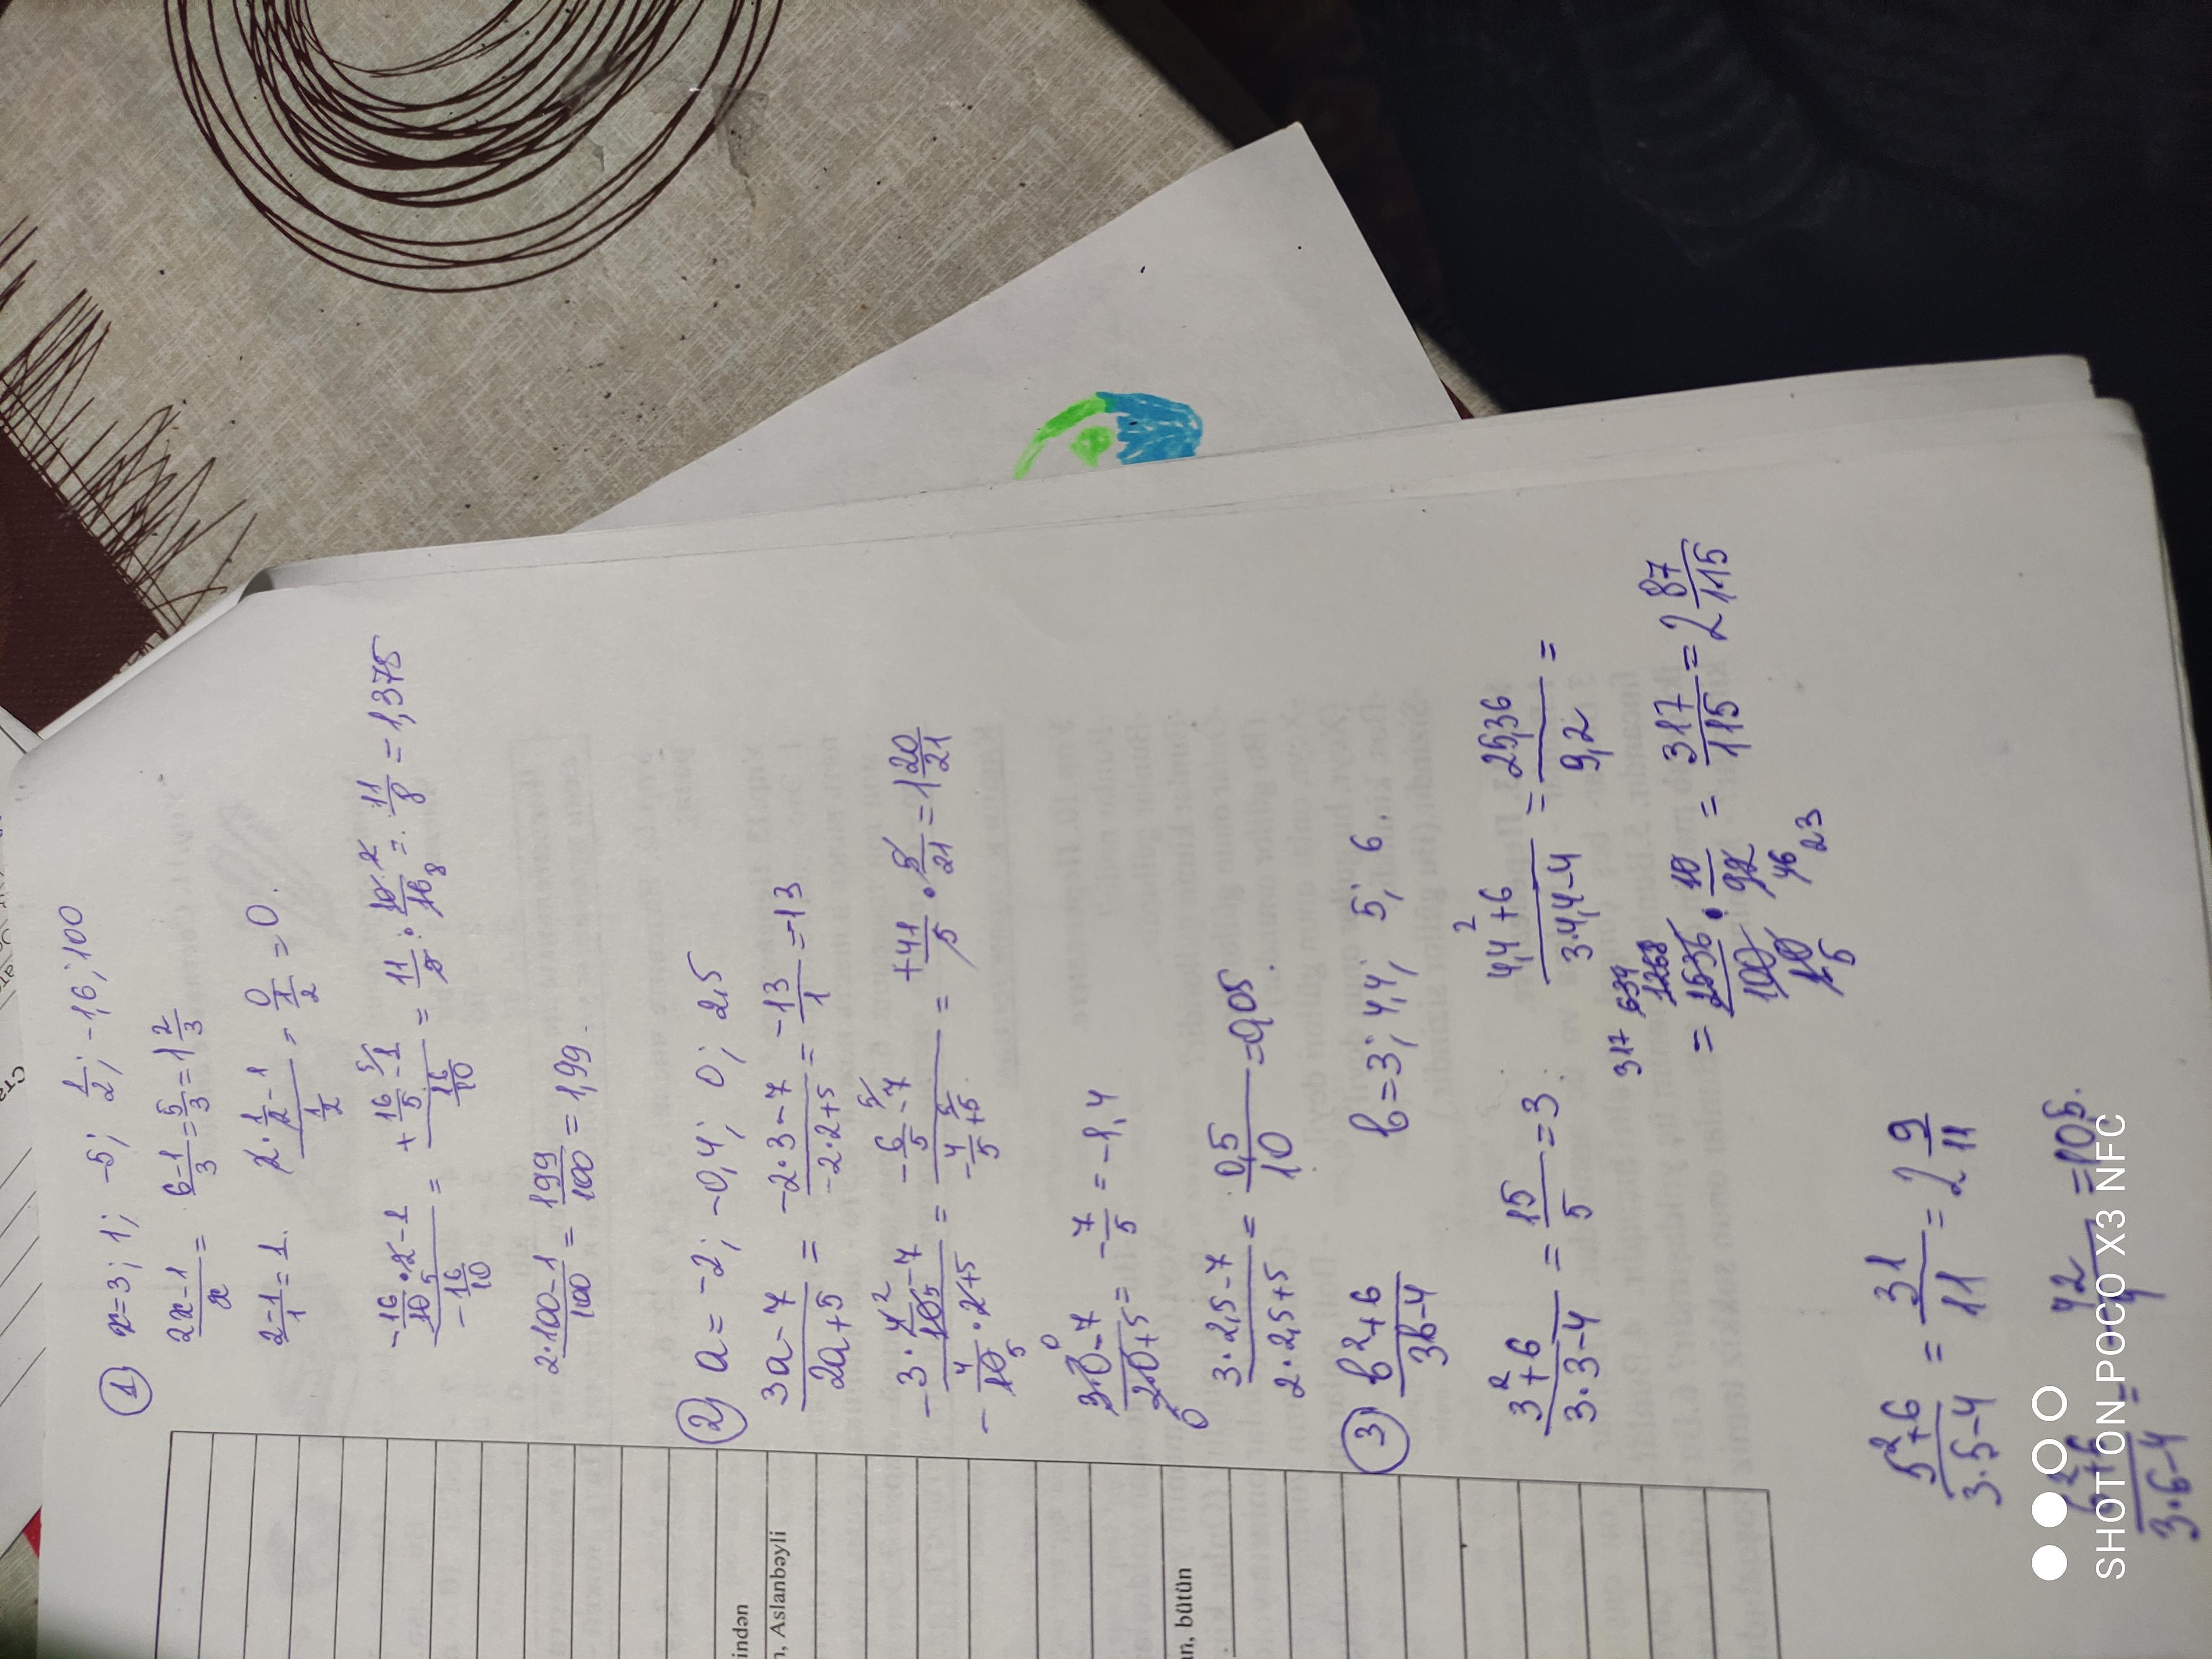 ① x=3; 1; -5; 1/2; -1,6; 100
(2x-1)/x = (6-1)/3 = 5/3 = 1 2/3
(2-1)/1 = 1. (2·1/2-1)/(1/2) = 0/(1/2) = 0.
(-16/10·2-1)/(-16/10) = (+16/5-1)/(16/10) = 11/5·10/16 = 11/8 = 1,375
(2·100-1)/100 = 199/100 = 1,99.
② a=-2; -0,4; 0; 2,5
(3a-7)/(2a+5) = (-2·3-7)/(-2·2+5) = -13/1 = -13
(-3·4/10-7)/(-4/10·2+5) = (-6/5-7)/(-4/5+5) = +41/5·5/21 = 1 20/21
(3·0-7)/(2·0+5) = -7/5 = -1,4
(3·2,5-7)/(2·2,5+5) = 0,5/10 = 0,05
③ (b²+6)/(3b-4) b=3; 4,4; 5; 6.
(3²+6)/(3·3-4) = 15/5 = 3 (4,4²+6)/(3·4,4-4) = 25,36/9,2 =
317 634 1268
= 2536/100·10/92 = 317/115 = 2 87/115
10 46
5 23
(5²+6)/(3·5-4) = 31/11 = 2 9/11
(6²+6)/(3·6-4) = 42
indən
n, Aslanbəyli
an, bütün
SHOT ON POCO X3 NFC